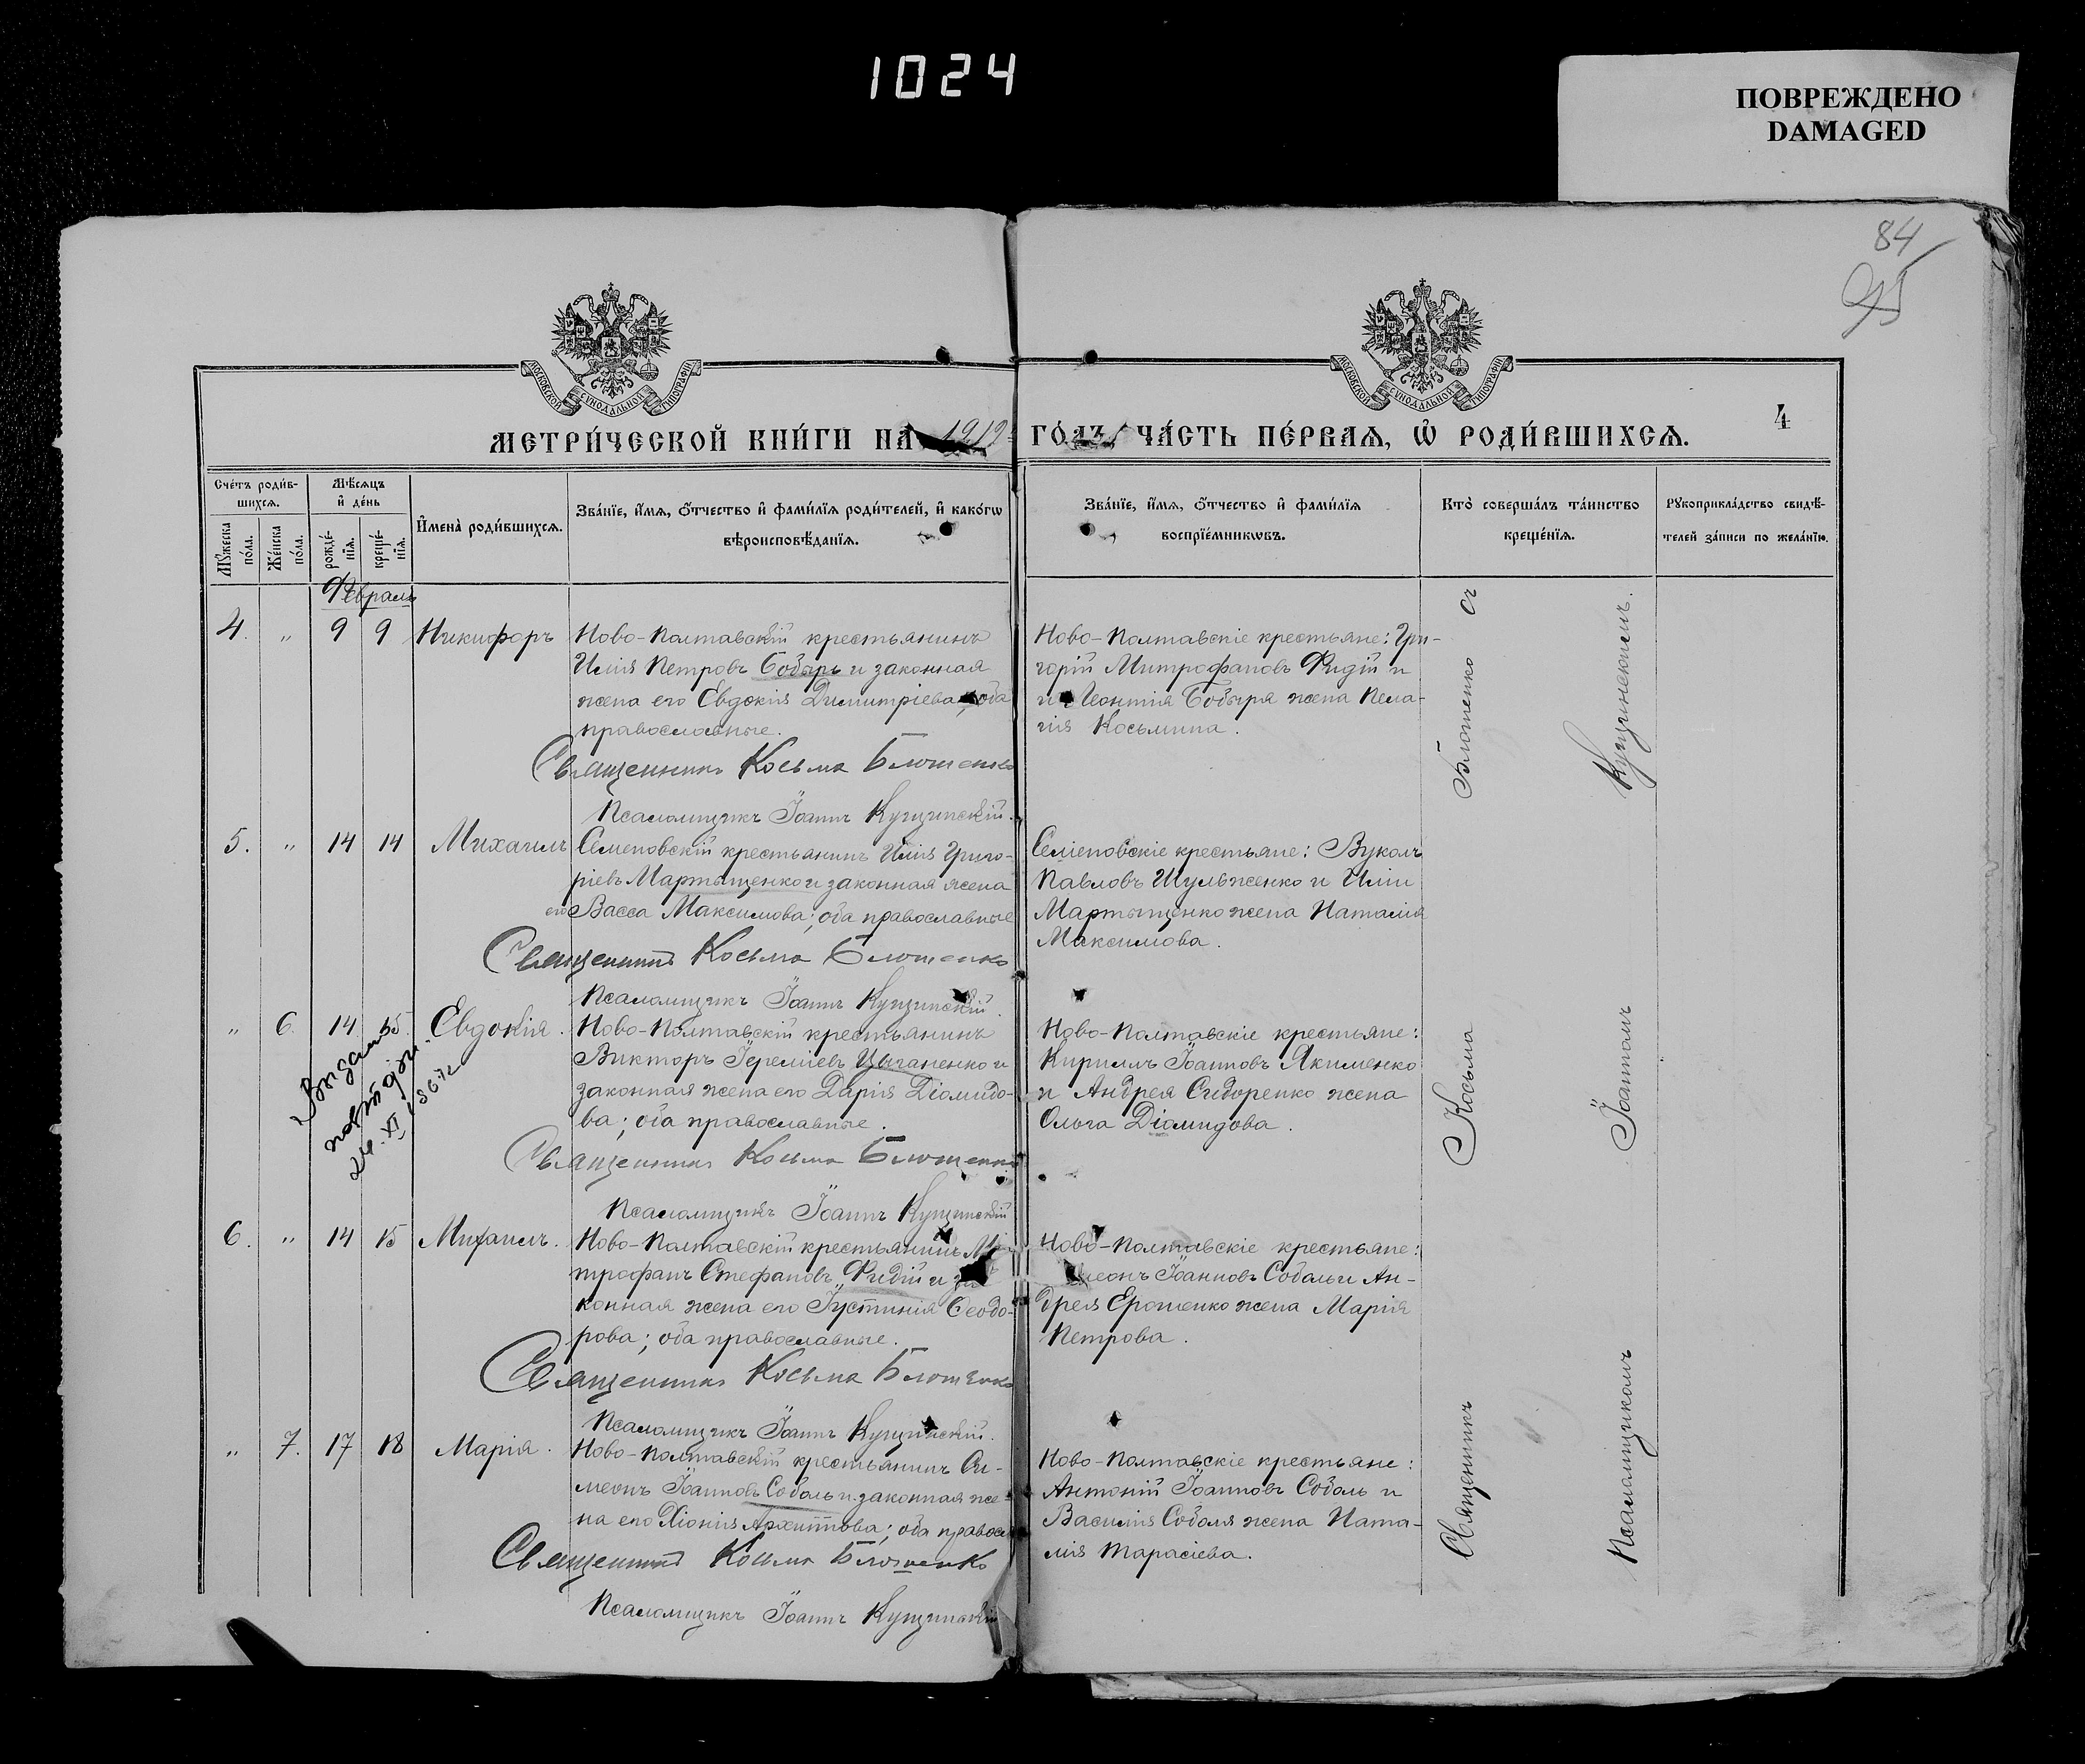 1024
ПОВРЕЖДЕНО
DAMAGED
84
95
МОСКОВСКОЙ СУНОДАЛЬНОЙ ТИПОГРАФІИ
МОСКОВСКОЙ СУНОДАЛЬНОЙ ТИПОГРАФІИ
МЕТРИ́ЧЕСКОЙ КНИ́ГИ НА 1912 ГО́ДЪ, ЧА́СТЬ ПЕ́РВАЯ, Ѡ҆ РОДИ́ВШИХСЯ.
4
Сче́тъ роди́в-
шихся.
Мꙋ́жеска по́ла.
Же́нска по́ла.
Мѣ́сяцъ
и҆ де́нь
рожде́-
нїя.
креще́-
нїя.
И҆мена̀ роди́вшихся.
Зва́нїе, и҆́мя, ѻ҆́тчество и҆ фами́лїя роди́телей, и҆ како́гѡ
вѣроисповѣ́данїя.
Зва́нїе, и҆́мя, ѻ҆́тчество и҆ фами́лїя
воспрїе́мникѡвъ.
Кто̀ соверша́лъ та́инство
креще́нїя.
Рꙋкоприкла́дство свидѣ́-
телей за́писи по жела́нїю.
Февраль
4. " 9 9 Никифоръ
Ново-Полтавскій крестьянинъ
Илія Петровъ Бобырь и законная
жена его Евдокія Димитріева; оба
православные.
Священникъ Косьма Блошенко
Псаломщикъ Іоаннъ Кущинскій.
Ново-Полтавскіе крестьяне: Гри-
горій Митрофановъ Фидій и
Леонтія Бобыря жена Пела-
гія Косьмина.
5. " 14 14 Михаилъ
Семеновскій крестьянинъ Илія Григо-
ріевъ Мартыщенко и законная жена
его Васса Максимова; оба православные
Священникъ Косьма Блошенко
Псаломщикъ Іоаннъ Кущинскій.
Семеновскіе крестьяне: Вуколъ
Павловъ Шульженко и Иліи
Мартыщенко жена Наталія
Максимова.
" 6. 14 15 Евдокія.
Ново-Полтавскій крестьянинъ
Викторъ Іереміевъ Цыганенко и
законная жена его Дарія Діомидо-
ва; оба православные.
Священникъ Косьма Блошенко
Псаломщикъ Іоаннъ Кущинскій
Ново-Полтавскіе крестьяне:
Кириллъ Іоанновъ Якименко
и Андрея Сидоренко жена
Ольга Діомидова.
6. " 14 15 Михаилъ.
Ново-Полтавскій крестьянинъ Ми-
трофанъ Стефановъ Фидій и за-
конная жена его Іустинія Ѳеодо-
рова; оба православные.
Священникъ Косьма Блошенко
Псаломщикъ Іоаннъ Кущинскій.
Ново-Полтавскіе крестьяне:
Іоанновъ Соболь и Ан-
дрея Ерошенко жена Марія
Петрова.
" 7. 17 18 Марія.
Ново-Полтавскій крестьянинъ Си-
меонъ Іоанновъ Соболь и законная же-
на его Хіонія Архиппова; оба правосл
Священникъ Косьма Блошенко
Псаломщикъ Іоаннъ Кущинскій
Ново-Полтавскіе крестьяне:
Антоній Іоанновъ Соболь и
Василія Соболя жена Ната-
лія Тарасіева.
Священникъ Косьма Блошенко съ
Псаломщикомъ Іоанномъ Кущинскимъ.